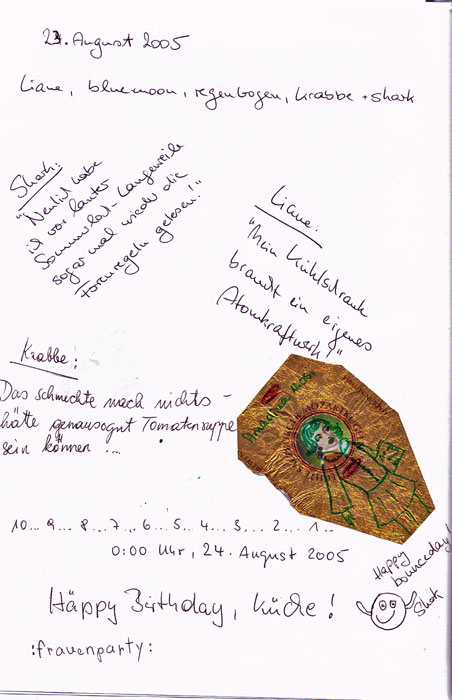 23. August 2005
Liane, bluemoon, regenbogen, krabbe + shark
Shark:
"Neulich habe
ich vor lauter
Sommerloch-Langeweile
sogar mal wieder die
Forenregeln gelesen!"
Liane:
"Mein Kühlschrank
braucht ein eigenes
Atomkraftwerk!"
Krabbe:
Das schmeckte nach nichts -
hätte genausogut Tomatensuppe
sein können ...
10... 9... 8... 7... 6... 5... 4... 3... 2... 1...
0:00 Uhr, 24. August 2005
Häppy Böthday, Küche!
Happy
bounceday!
:frauenparty: